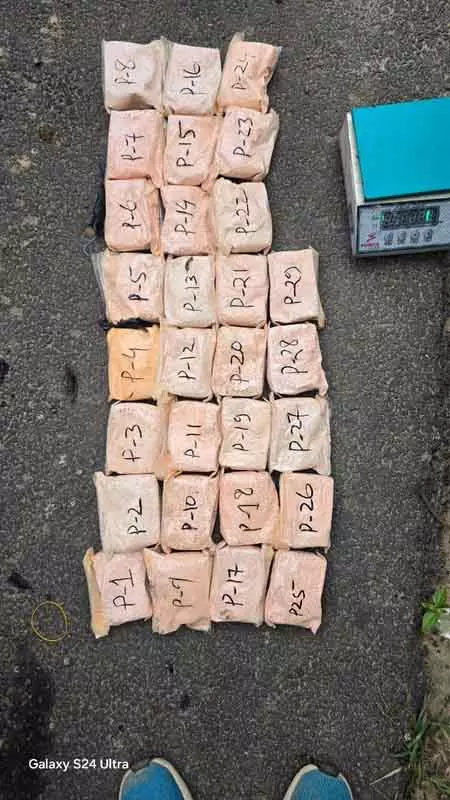 P-8 P-16 P-24
P-7 P-15 P-23
P-6 P-14 P-22
P-5 P-13 P-21 P-29
P-4 P-12 P-20 P-28
P-3 P-11 P-19 P-27
P-2 P-10 P-18 P-26
P-1 P-9 P-17 P25-
Galaxy S24 Ultra